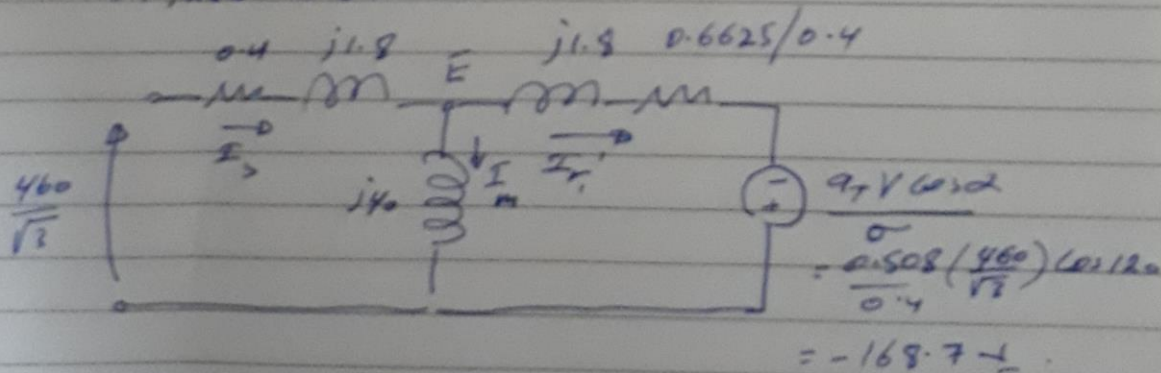 0.4 j1.8 E̅ j1.8 0.6625/0.4
I̅s
I̅m
I̅r'
460/√3
j40
- +
aT V cosα / σ
= 0.508/0.4 (460/√3) cos120
= -168.7